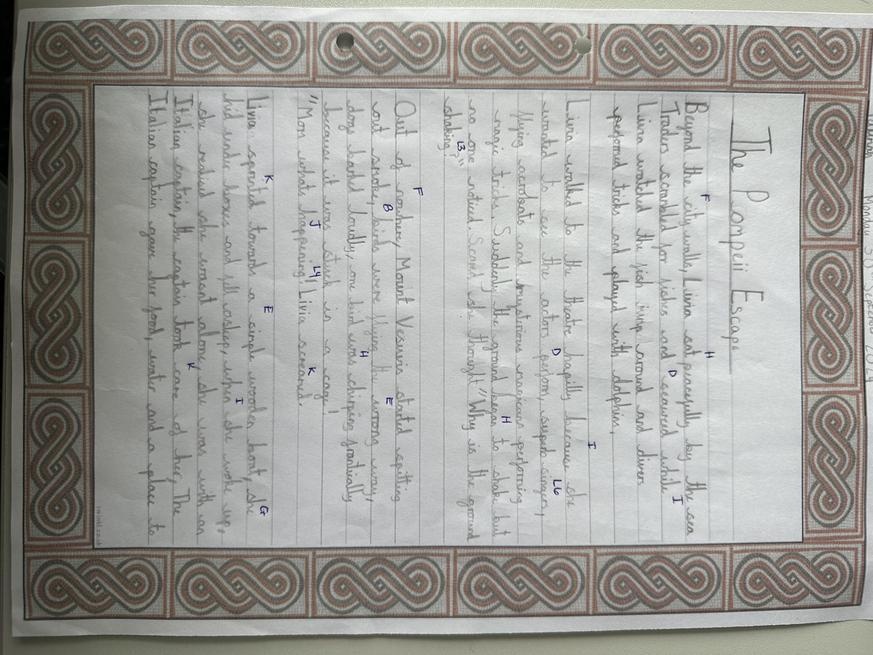 Monday 30th September 2024
The Pompeii Escape
F H
Beyond the city walls, Livia sat peacefully by the sea
D I
Traders scrambled for fishes and seaweed while
Livia watched the fish jump around and divers
perfomed tricks and played with dolphins.
I
Livia walked to the theatre happily because she
D L6
wanted to see the actors perform, superb singers,
flying acrobats and mysterious magicians performing
H
magic tricks. Suddenly the ground began to shake but
no one noticed. Scared she thought "Why is the ground
B
shaking?"
F
Out of nowhere, Mount Vesuvius started spitting
B E
out smoke, birds were flying the wrong way,
H
dogs barked loudly, one bird was chirping frantically
because it was stuck in a cage!
J L4 K
"Mom what happening! Livia screamed.
K E G
Livia sprinted towards a single wooden boat, she
I
hid under boxes and fell asleep, when she woke up,
she realised she wasent alone, she was with an
K
Italian captain, the captain took care of her. The
Italian captain gave her food, water and a place to